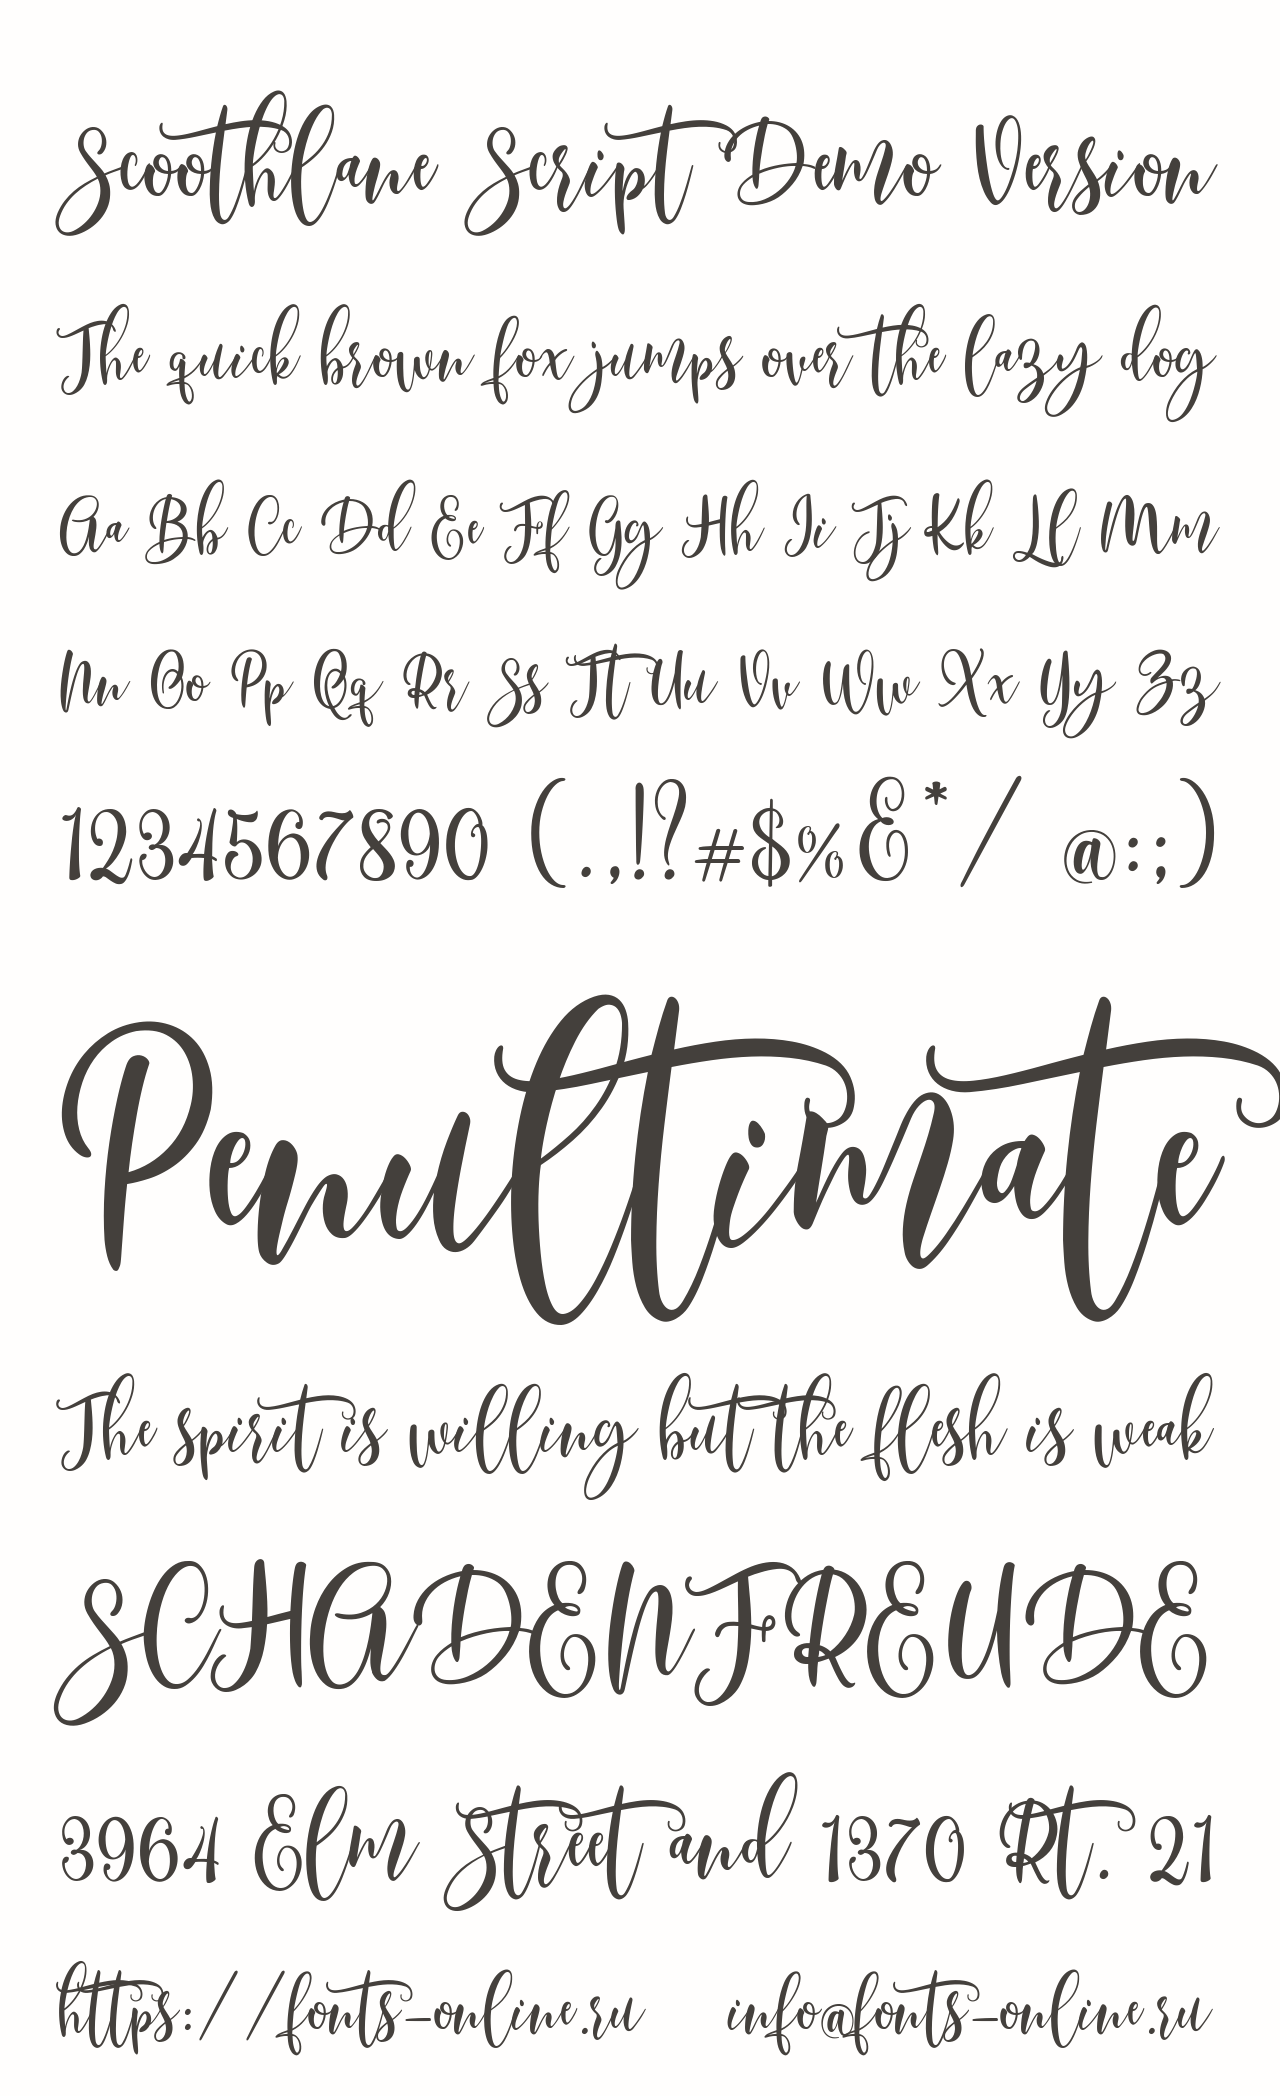 Scoothlane Script Demo Version
The quick brown fox jumps over the lazy dog
Aa Bb Cc Dd Ee Ff Gg Hh Ii Jj Kk Ll Mm
Nn Oo Pp Qq Rr Ss Tt Uu Vv Ww Xx Yy Zz
1234567890 (.,!?#$%&*/ @:;)
Penultimate
The spirit is willing but the flesh is weak
SCHADENFREUDE
3964 Elm Street and 1370 Rt. 21
https://fonts-online.ru info@fonts-online.ru